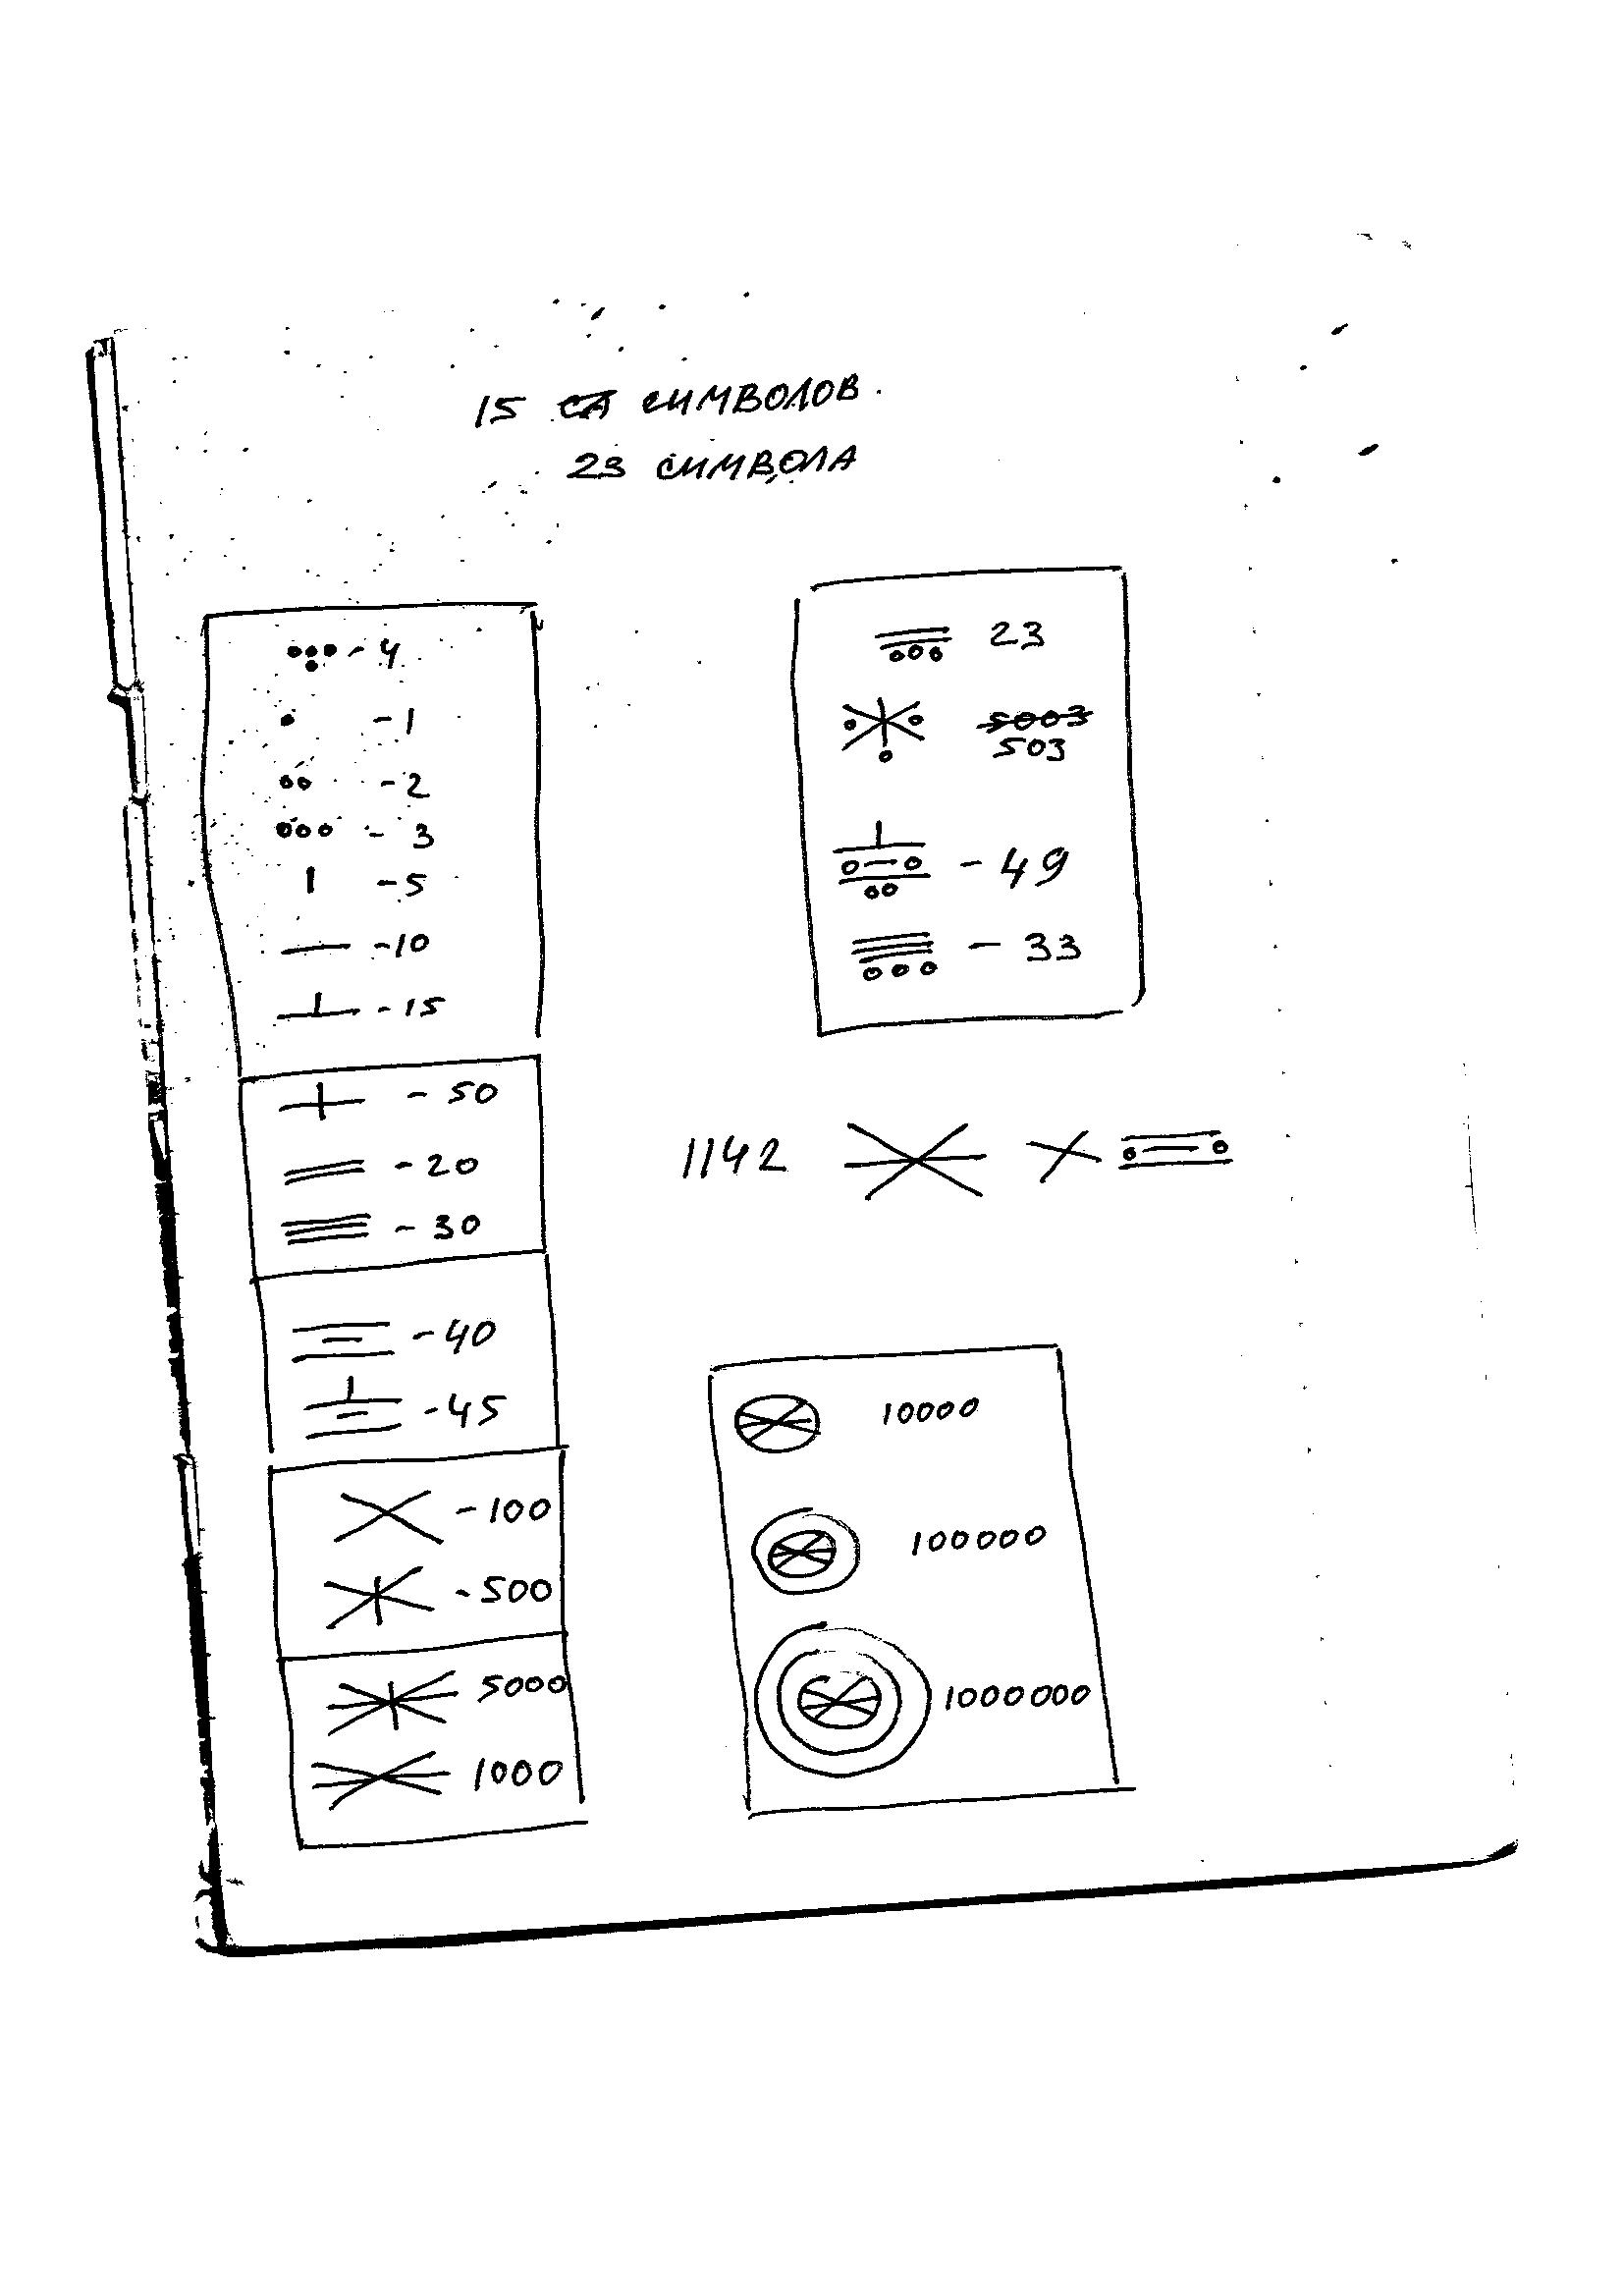 15 СИМВОЛОВ.
23 СИМВОЛА
- 4
- 1
- 2
- 3
- 5
- 10
- 15
- 50
- 20
- 30
- 40
- 45
- 100
- 500
5000
1000
23
5003
503
- 49
- 33
1142
10000
100000
1000000